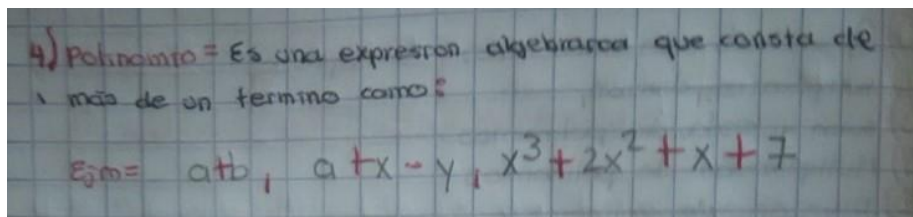 4) Polinomio = Es una expresion algebraica que consta de
mas de un termino como:
Ejm= a+b, a+x-y, x³+2x²+x+7